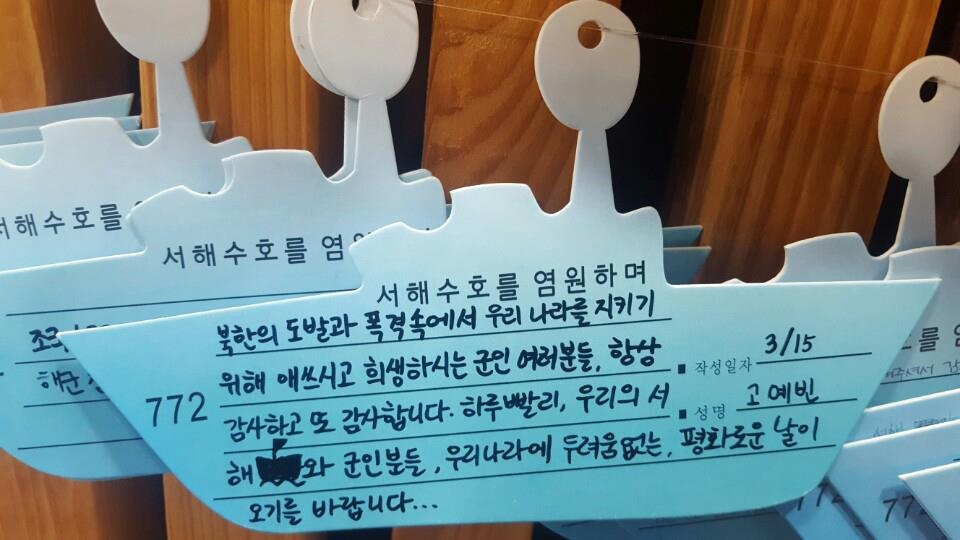 서해수호를
서해수호를 염원
서해수호를 염원하며
북한의 도발과 폭격속에서 우리 나라를 지키기
위해 애쓰시고 희생하시는 군인 여러분들, 항상
감사하고 또 감사합니다. 하루빨리, 우리의 서
해 와 군인분들, 우리나라에 두려움없는, 평화로운 날이
오기를 바랍니다...
772
■ 작성일자 3/15
■ 성명 고예빈
해군
를 염
772
772